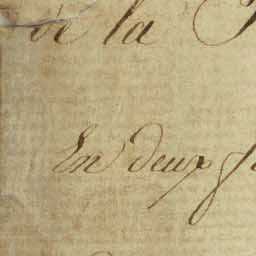 de la
En deux